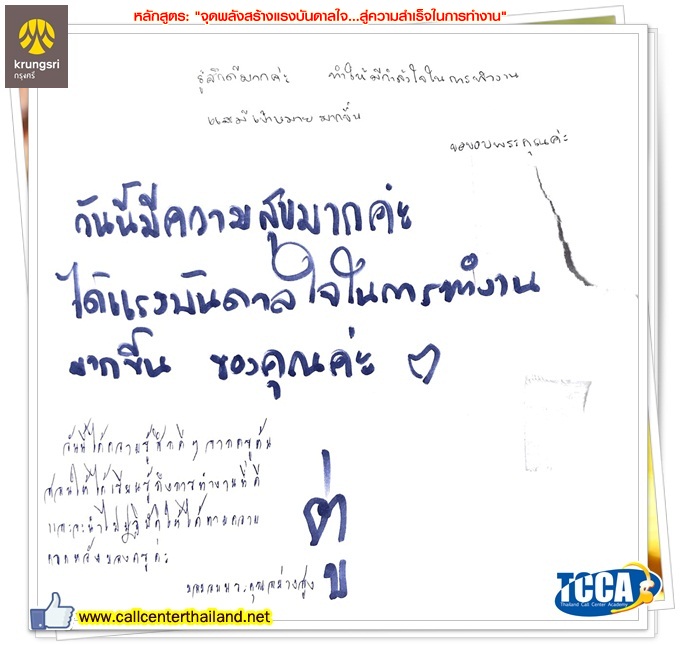 หลักสูตร: "จุดพลังสร้างแรงบันดาลใจ...สู่ความสำเร็จในการทำงาน"
krungsri
กรุงศรี
รู้สึกดีมากค่ะ ทำให้มีกำลังใจในการทำงาน
และมีเป้าหมายมากขึ้น
ขอขอบพระคุณค่ะ
วันนี้มีความสุขมากค่ะ
ได้แรงบันดาลใจในการทำงาน
มากขึ้น ขอบคุณค่ะ
วันนี้ได้ความรู้สึกดีๆ จากครูต้น
สอนให้ได้เรียนรู้ถึงการทำงานที่ดี
และจะนำไปปฏิบัติให้ได้ตามความ
คาดหวังของครูค่ะ
TCCA
Thailand Call Center Academy
www.callcenterthailand.net